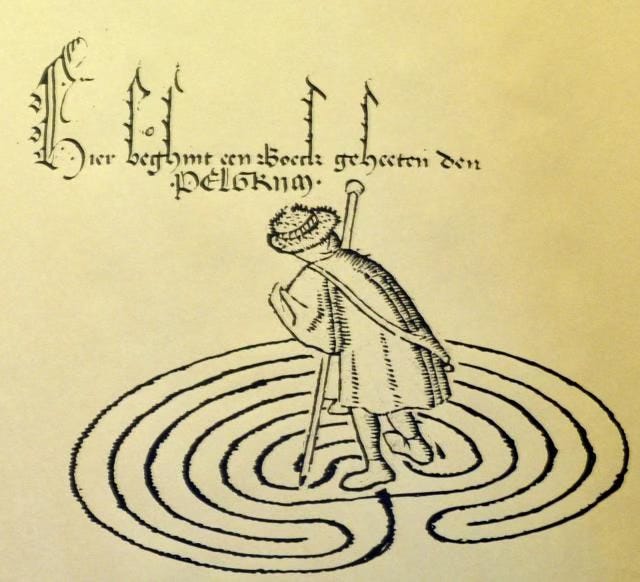 Hier beghint een Boeck geheeten den
PELGRIM